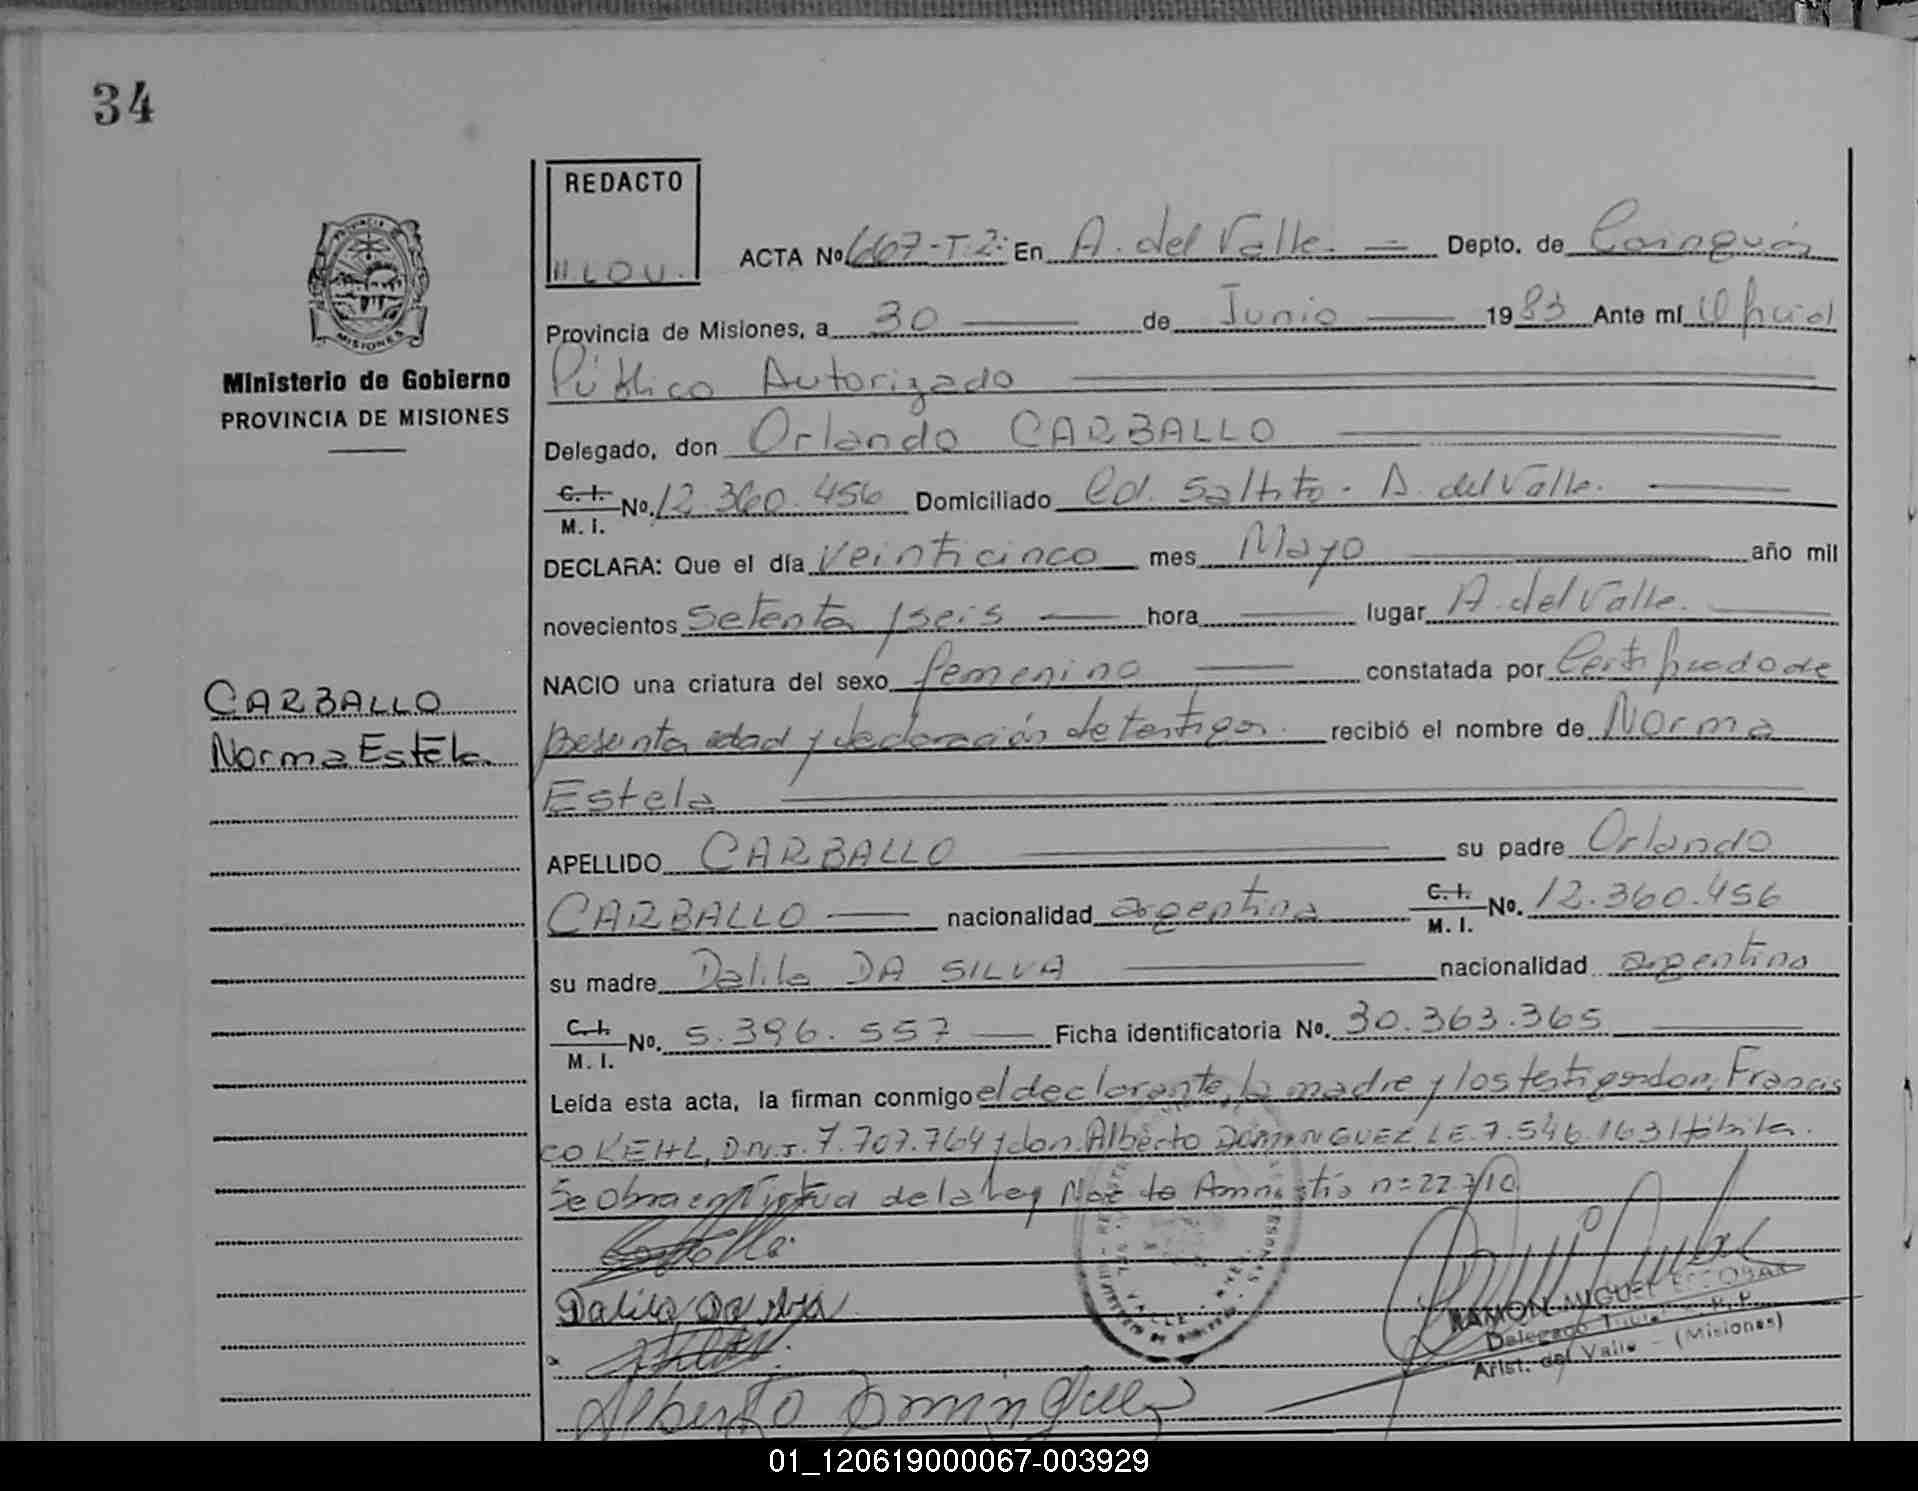 34
REDACTO
H.L.O.U.
ACTA Nº 667-T.2: En A. del Valle. Depto. de Cainguás
Provincia de Misiones, a 30 de Junio 1983 Ante mí Oficial
Público Autorizado
Delegado, don Orlando CARBALLO
C. I. M. I. Nº. 12.360.456 Domiciliado Col. Saltito - A. del Valle.
DECLARA: Que el día veinticinco mes Mayo año mil
novecientos setenta y seis hora lugar A. del Valle.
NACIO una criatura del sexo femenino constatada por Certificado de
presunta edad y declaración de testigos. recibió el nombre de Norma
Estela
APELLIDO CARBALLO su padre Orlando
CARBALLO nacionalidad argentina C. I. M. I. Nº. 12.360.456
su madre Dalila DA SILVA nacionalidad argentina
C. I. M. I. Nº. 5.396.557 Ficha identificatoria Nº. 30.363.365
Leída esta acta, la firman conmigo el declarante, la madre y los testigos don, Francis
co KEHL, D.N.I. 7.707.764 y don Alberto DOMINGUEZ, L.E. 7.546.163 Hábiles.
Se obra en virtud de la Ley Nac de Amnistía n= 22.710
Dalila Da Silva
Alberto Dominguez
RAMON MIGUEL ESCOBAR
Delegado Titular R. P.
Arist. del Valle - (Misiones)
PROVINCIA DE
MISIONES
Ministerio de Gobierno
PROVINCIA DE MISIONES
CARBALLO
Norma Estela
01_120619000067-003929